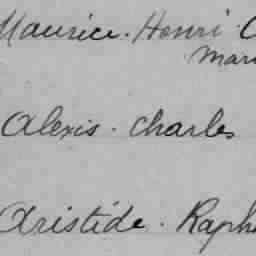 Maurice. Henri
Alexis. Charles
Aristide.